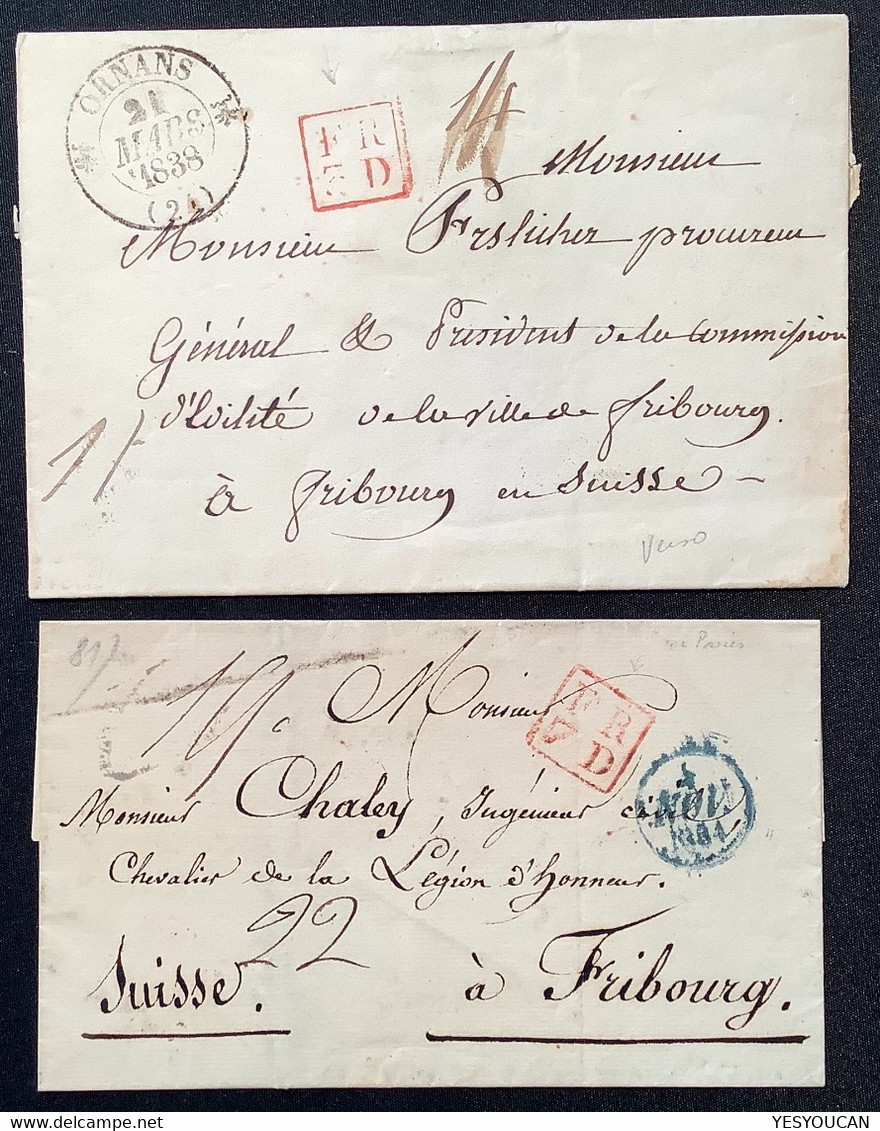 ORNANS
21
MARS
1838
(24)
F R
3 D
14
Monsieur
Monsieur procureur
Général & Président de la Commission
d'Edilité de la ville de fribourg.
à fribourg en Suisse
Verso
817
Monsieur
F R
7 D
NOV
Monsieur Chaley, Ingénieur civil,
Chevalier de la Légion d'Honneur.
22
Suisse. à Fribourg.
YESYOUCAN